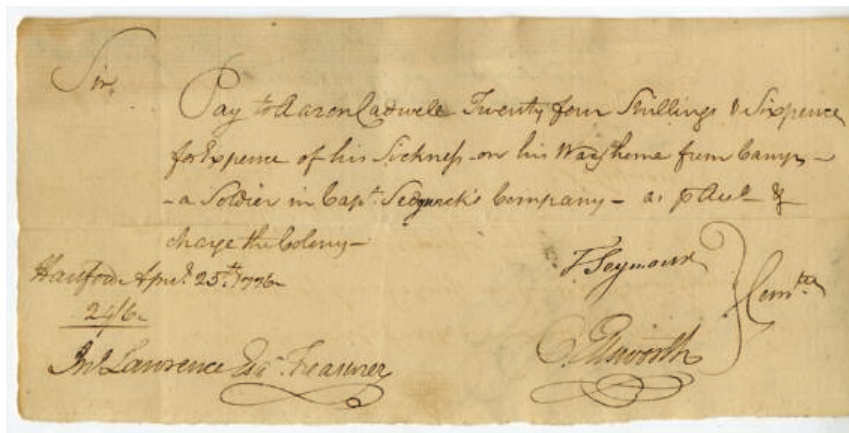 Sir,
Pay to Aaron Cadwele Twenty four Shillings & Sixpence
for Expence of his Sickness on his Way home from Camp –
– a Soldier in Capt. Sedgwick's Company – as pr Acct &
charge the Colony –
Hartford Apr. 25th 1776
T Seymour
24/6
Comtee
Jno Lawrence Esqr. Treasurer
O. Ellsworth